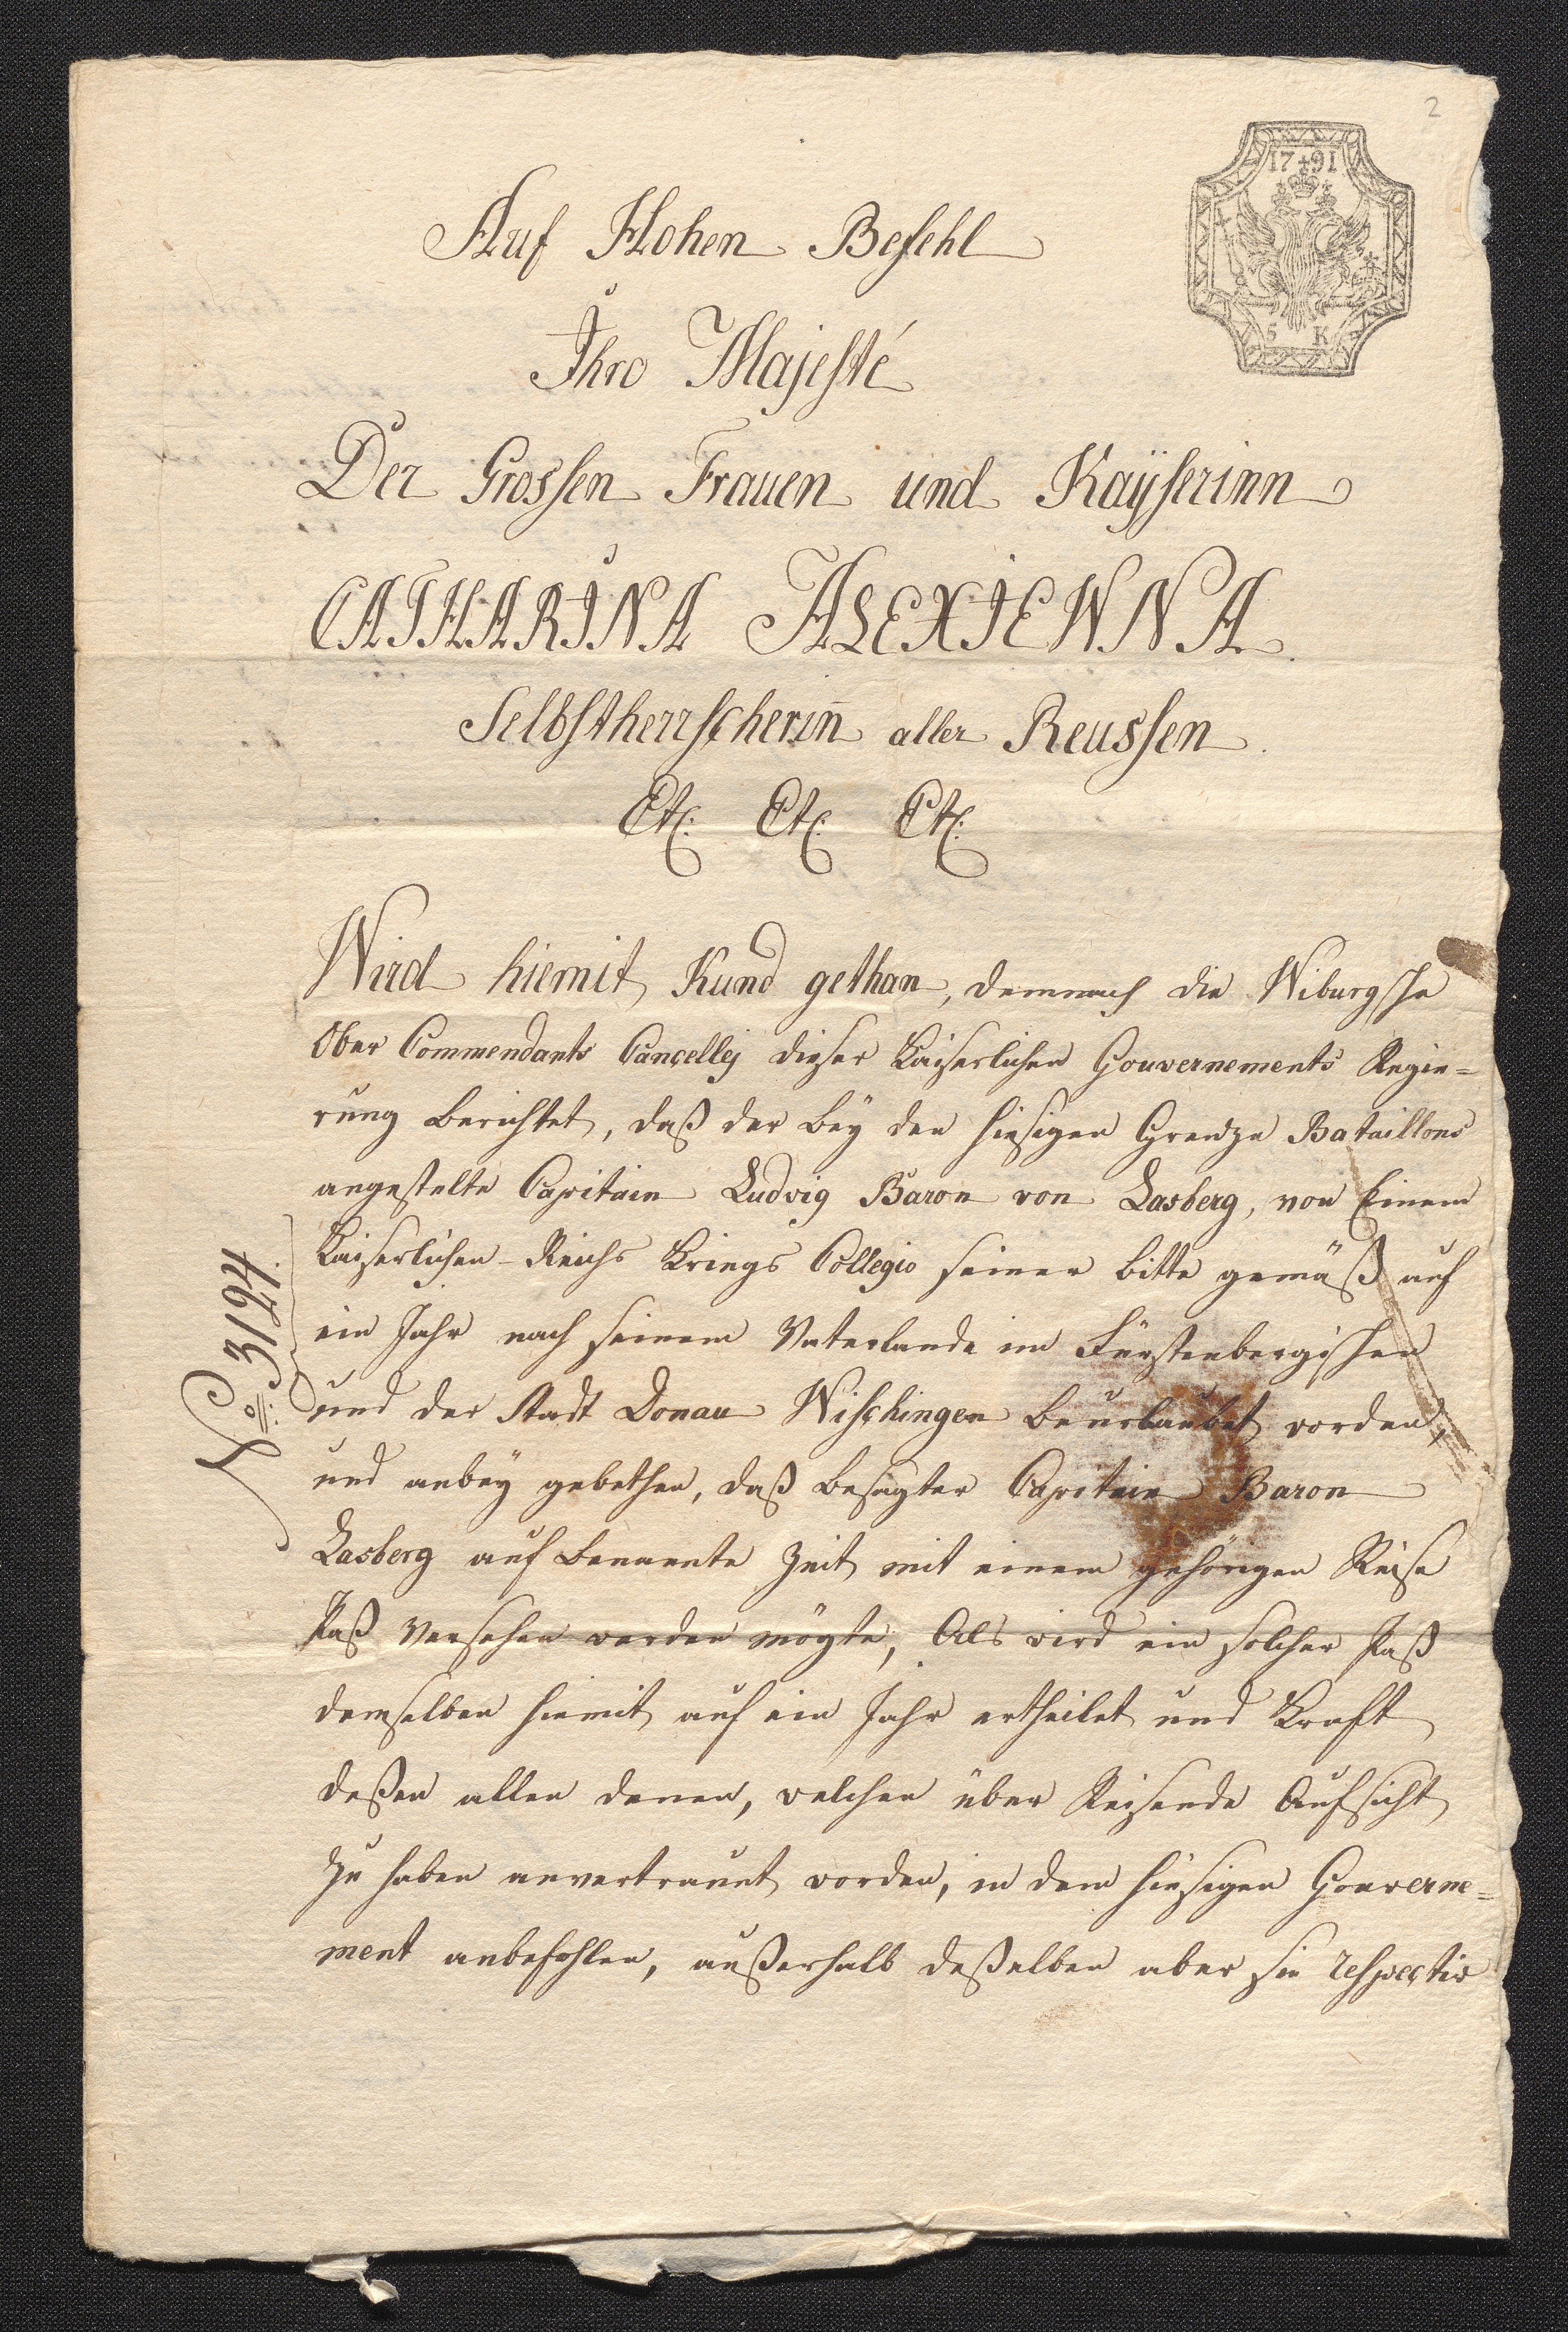 2
17 91
5 K
Auf Hohen Befehl
Ihro Majesté
Der Grossen Frauen und Kaÿserinn
CATHARINA ALEXIEWNA.
Selbstherrscherin̄ aller Reussen.
Etc: Etc: Etc:
Wird hiemit Kund gethan, demnach die Wiburgsche
Ober Commendants Cancelley dieser Kaiserlichen Gouvernements Regie=
rung berichtet, daß der beÿ den hiesigen Grenze Bataillons
angestelte Capitain Ludvig Baron von Lasberg, von Einem
Kaiserlichen Reichs Kriegs Collegio seiner bitte gemäß auf
ein Jahr nach seinem Vaterlande im Fürstenbergischen
und der Stadt Donau Wischingen beurlaubet worden,
und anbeÿ gebethen, daß besagter Capitain Baron
Lasberg auf benannte Zeit mit einem gehörigen Reise
Paß versehen werden mögte, Als wird ein solcher Paß
demselben hiemit auf ein Jahr ertheilet und Kraft
deßen allen denen, welchen über Reisende Aufsicht
zu haben anvertrauet worden, in dem hiesigen Gouverne=
ment anbefohlen, außerhalb deßelben aber sie respective
No: 3194.